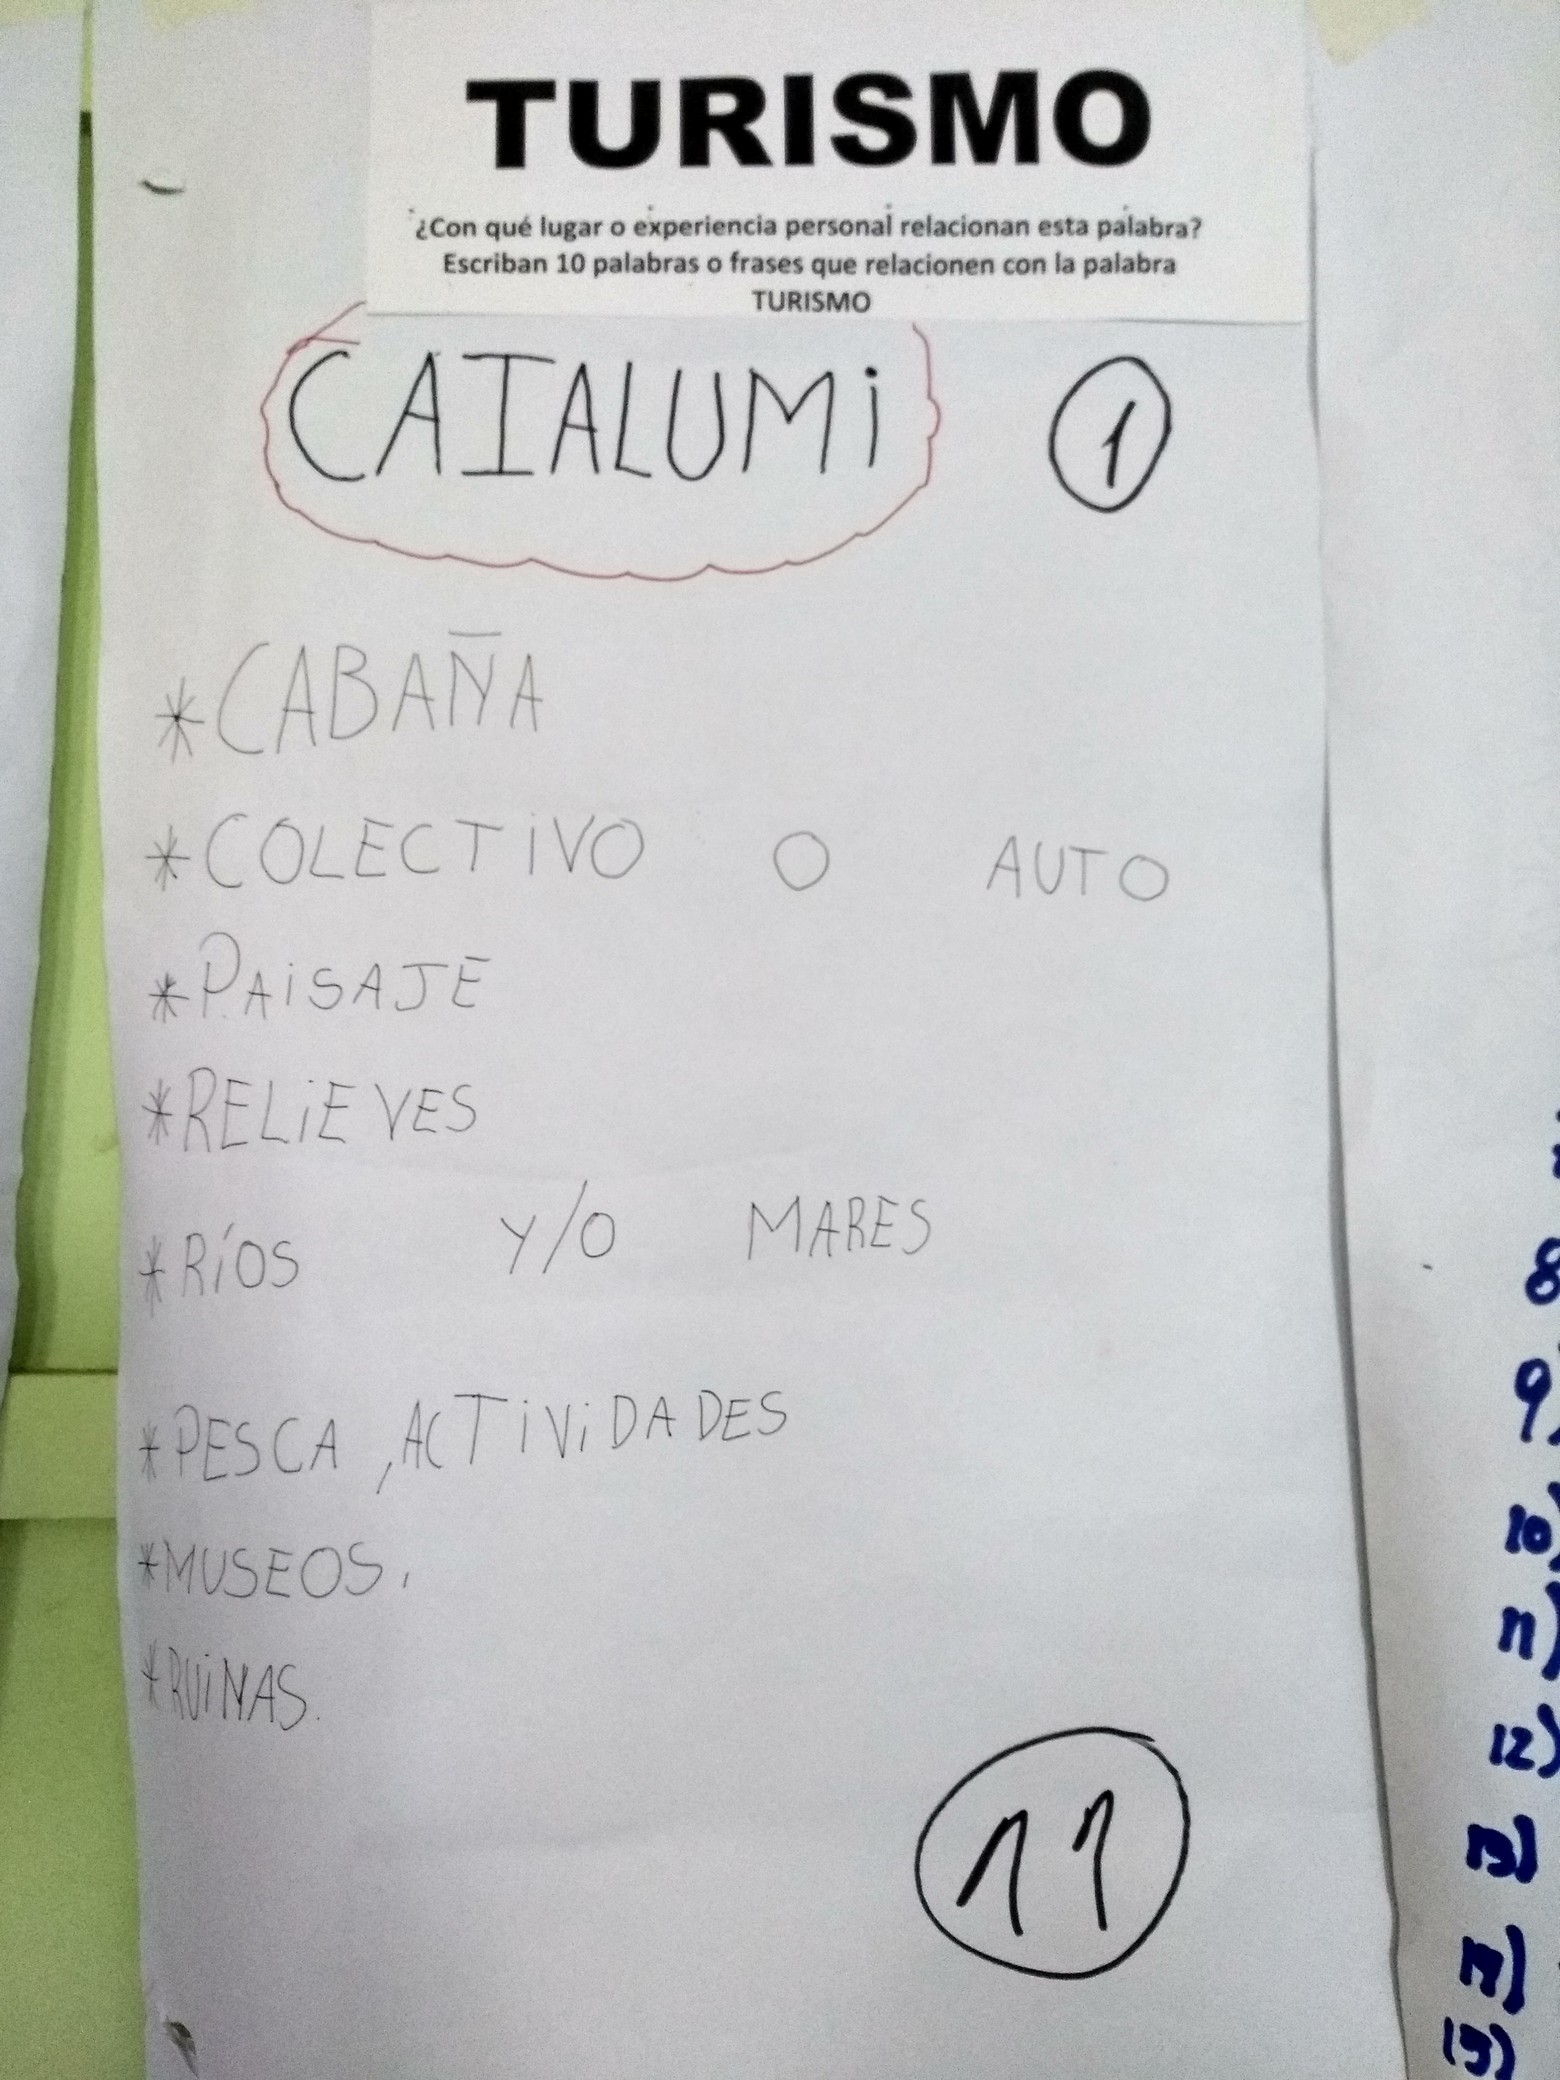 TURISMO
¿Con qué lugar o experiencia personal relacionan esta palabra?
Escriban 10 palabras o frases que relacionen con la palabra
TURISMO
CAIALUMi 1
*CABAÑA
*COLECTiVO O AUTO
*PAiSAJE
*RELiEVES
*RíOS Y/O MARES
8
*PESCA, ACTiViDADES
9)
10)
*MUSEOS.
11)
*RUiNAS.
12)
11
13)
15)